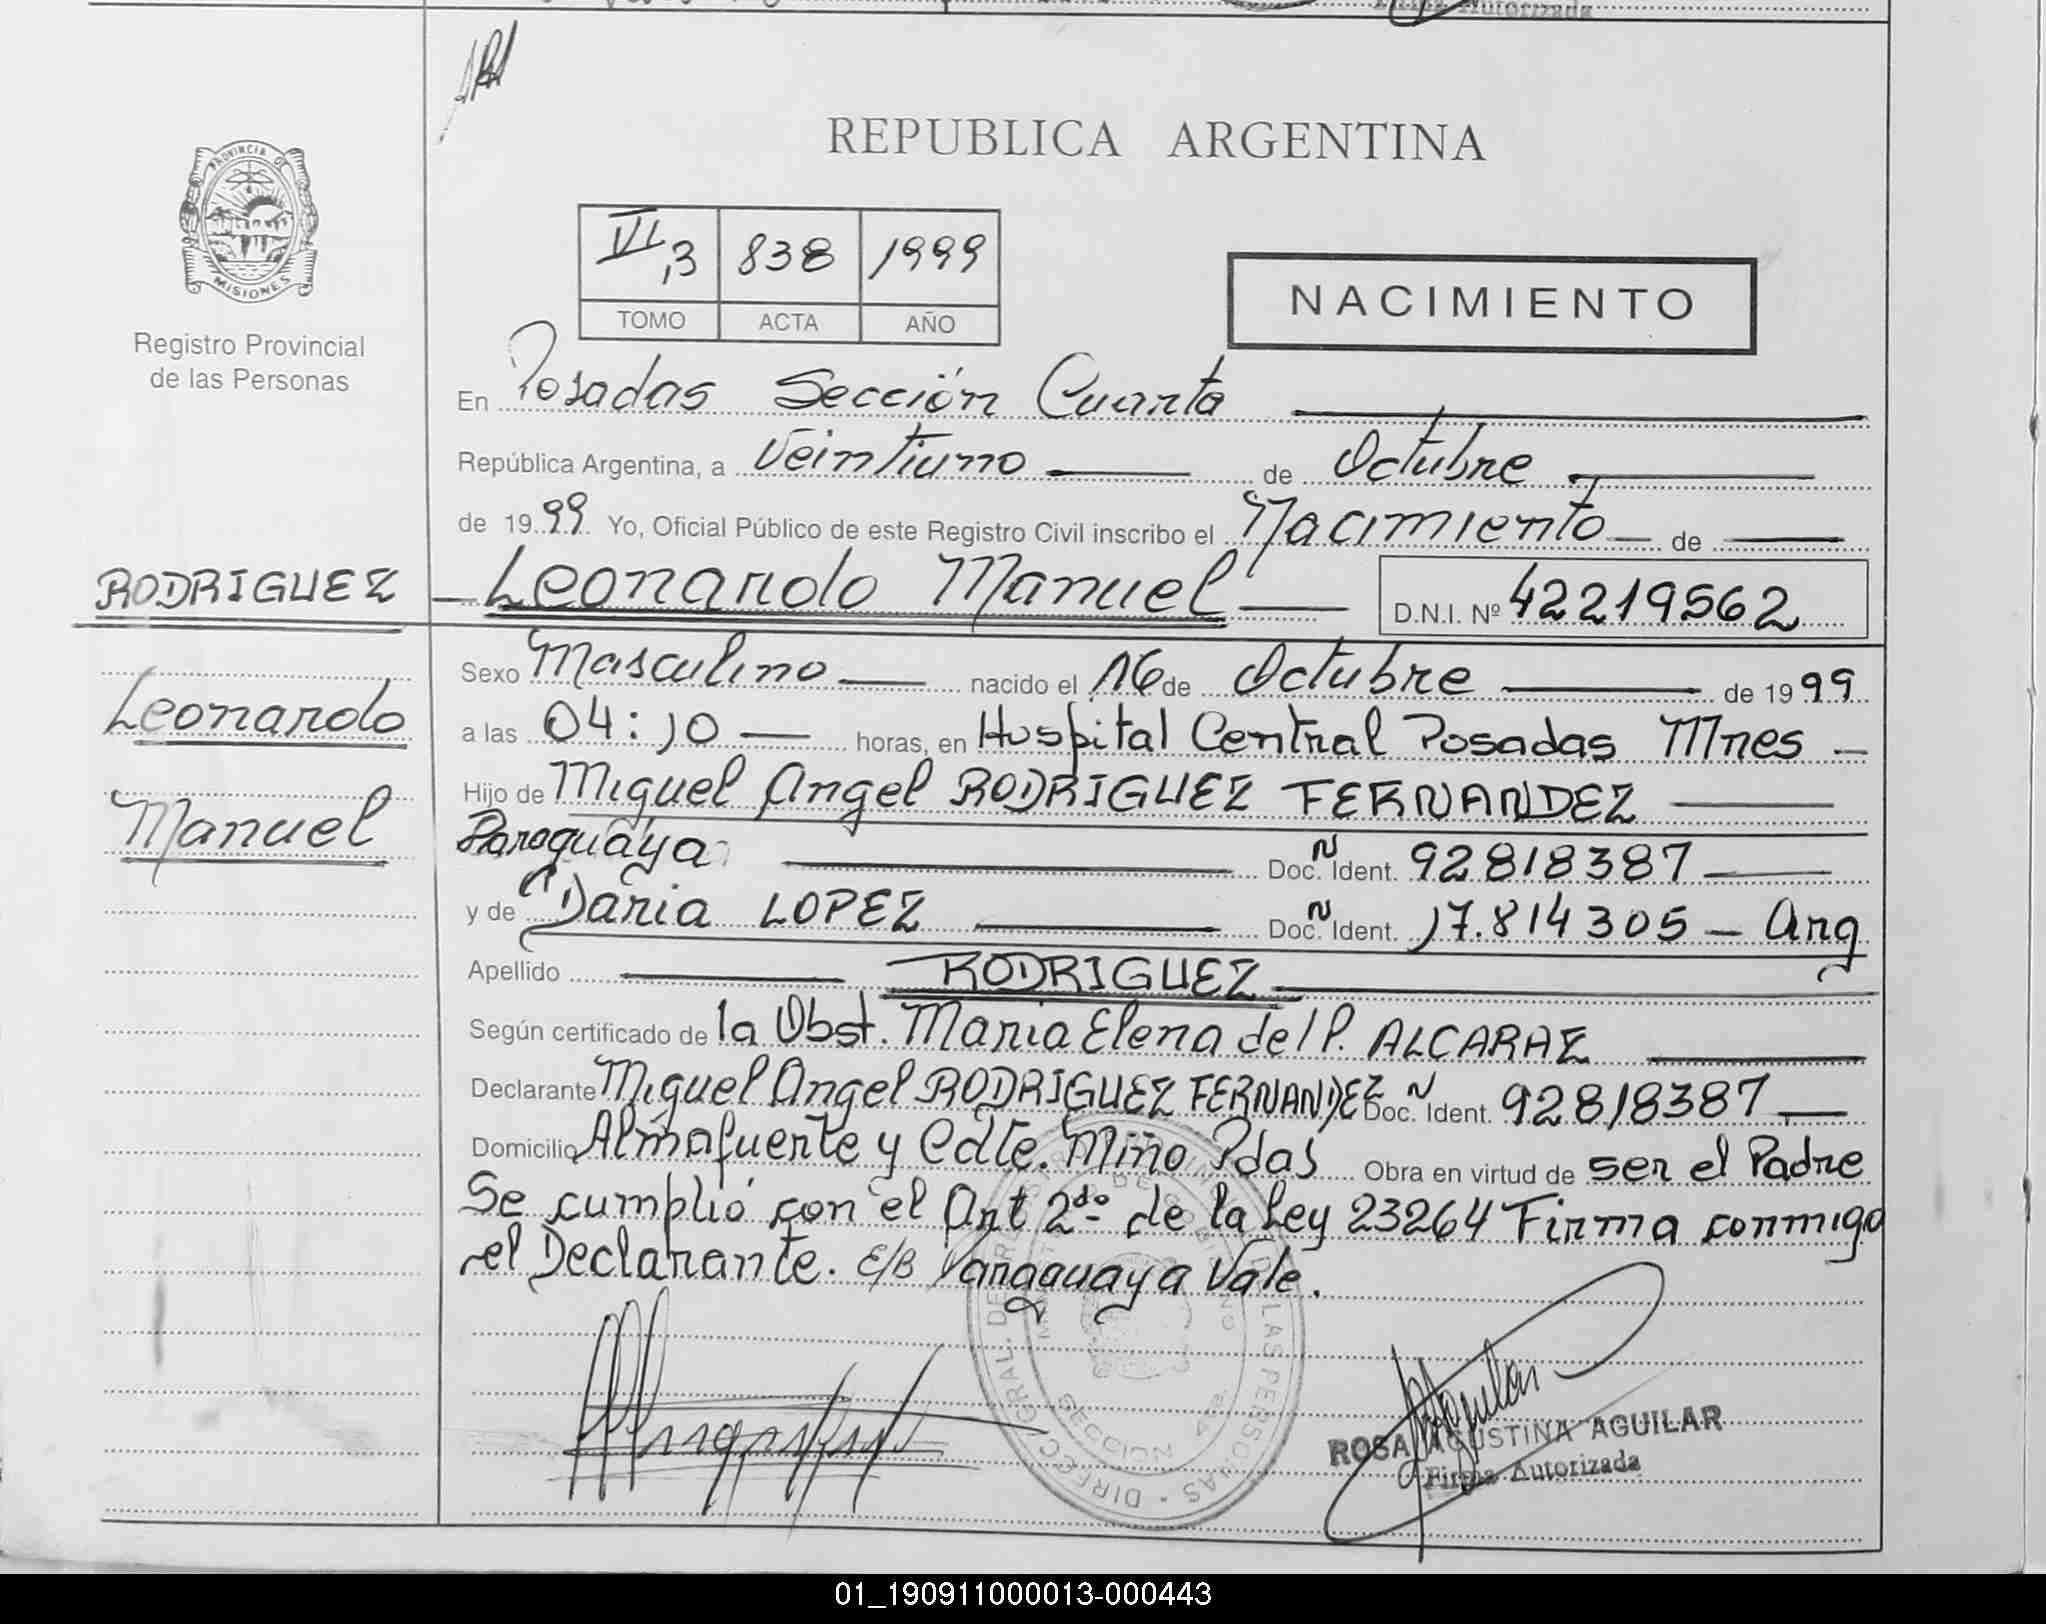 Firma Autorizada
PROVINCIA DE
MISIONES
Registro Provincial
de las Personas
REPUBLICA ARGENTINA
VI,3 838 1999
TOMO ACTA AÑO
NACIMIENTO
En Posadas Sección Cuarta
República Argentina, a Veintiuno de Octubre
de 1999 Yo, Oficial Público de este Registro Civil inscribo el Nacimiento de
RODRIGUEZ Leonardo Manuel D.N.I. Nº 42219562
Leonardo
Manuel
Sexo Masculino nacido el 16 de Octubre de 1999
a las 04:10 horas, en Hospital Central Posadas Mnes
Hijo de Miguel Angel RODRIGUEZ FERNANDEZ
Paraguaya Doc. Ident. 92818387
y de Daria LOPEZ Doc. Ident. 17.814305 - Arg
Apellido RODRIGUEZ
Según certificado de la Obst. Maria Elena del P. ALCARAZ
Declarante Miguel Angel RODRIGUEZ FERNANDEZ Doc. Ident. 92818387
Domicilio Almafuerte y Cdte. Miño Pdas Obra en virtud de ser el Padre
Se cumplió con el Art 2do de la Ley 23264 Firma conmigo
el Declarante. E/B Paraguaya Vale.
SECCION 4ta.
ROSA AGUSTINA AGUILAR
Firma Autorizada
01_190911000013-000443